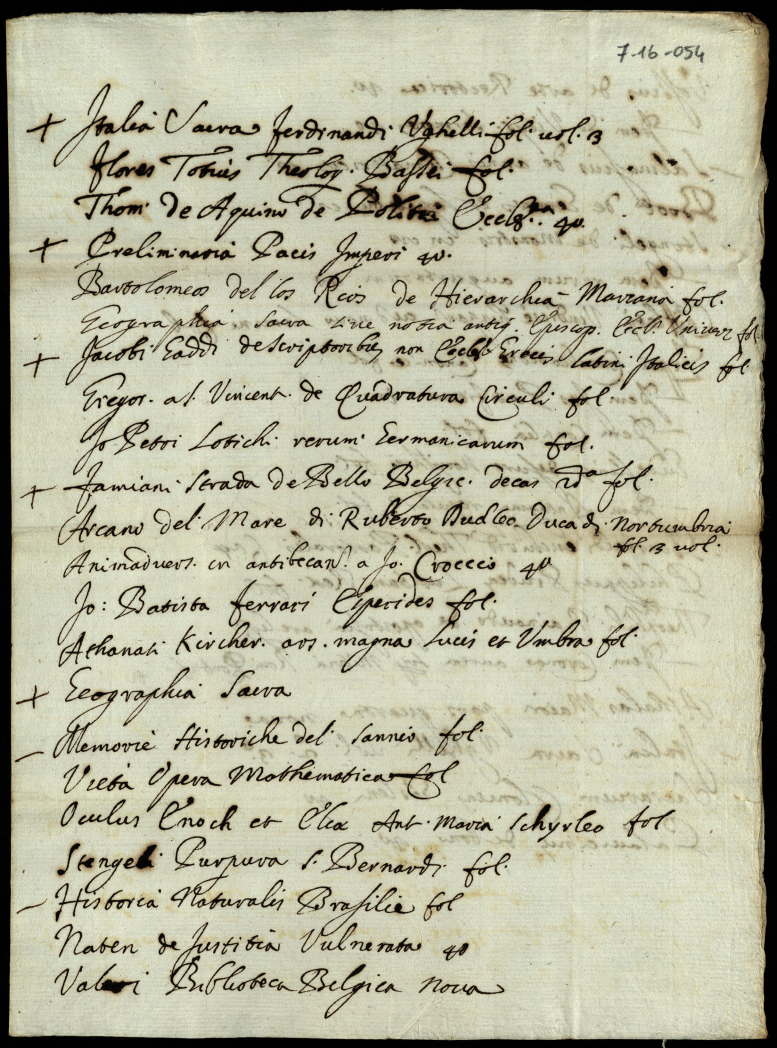 7-16-054
+ Italia Sacra Ferdinandi Vghelli fol. vol. 3
Flores Totius Theolog. Bassei fol.
Thom. de Aquino de Politia Eccl. 4o.
+ Preliminaria Pacis Imperi 4o.
Bartolomeos del los Reios de Hierarchia Mariana fol.
Geographia Sacra sive notitia antiq. Episcop. Eccl. Univer fol.
+ Jacobi Gaddi de Scriptoribus non Eccls Grecis Latini Italicis fol
Gregor. a S. Vincent. de Quadratura Circuli fol.
Jo Petri Lotichi rerum Germanicarum fol.
+ Famiani Strada de Bello Belgic. decas 2da fol.
Arcano del Mare di Ruberto Dudleo Duca di Nortumbria
fol. 3 vol.
Animadvers. in antibecan. a Jo. Croccio 4o
Jo: Batista Ferrari Esperides fol.
Athanati Kircher. ars. magna Lucis et Vmbra fol.
+ Geographia Sacra
– Memorie Historiche del Sannio fol.
Vieta Opera Mathematica fol
Oculus Enoch et Elia Ant. Maria Schyrleo fol
Stengeli Purpura S. Bernardi fol.
– Historia Naturalis Brasilie fol
Naten de Justitia Vulnerata 4o
Valeri Biblioteca Belgica Nova